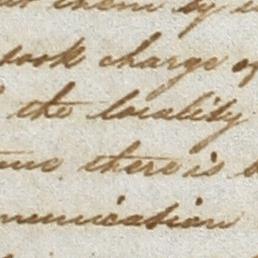 them by
took charge of
the locality
there is
munication